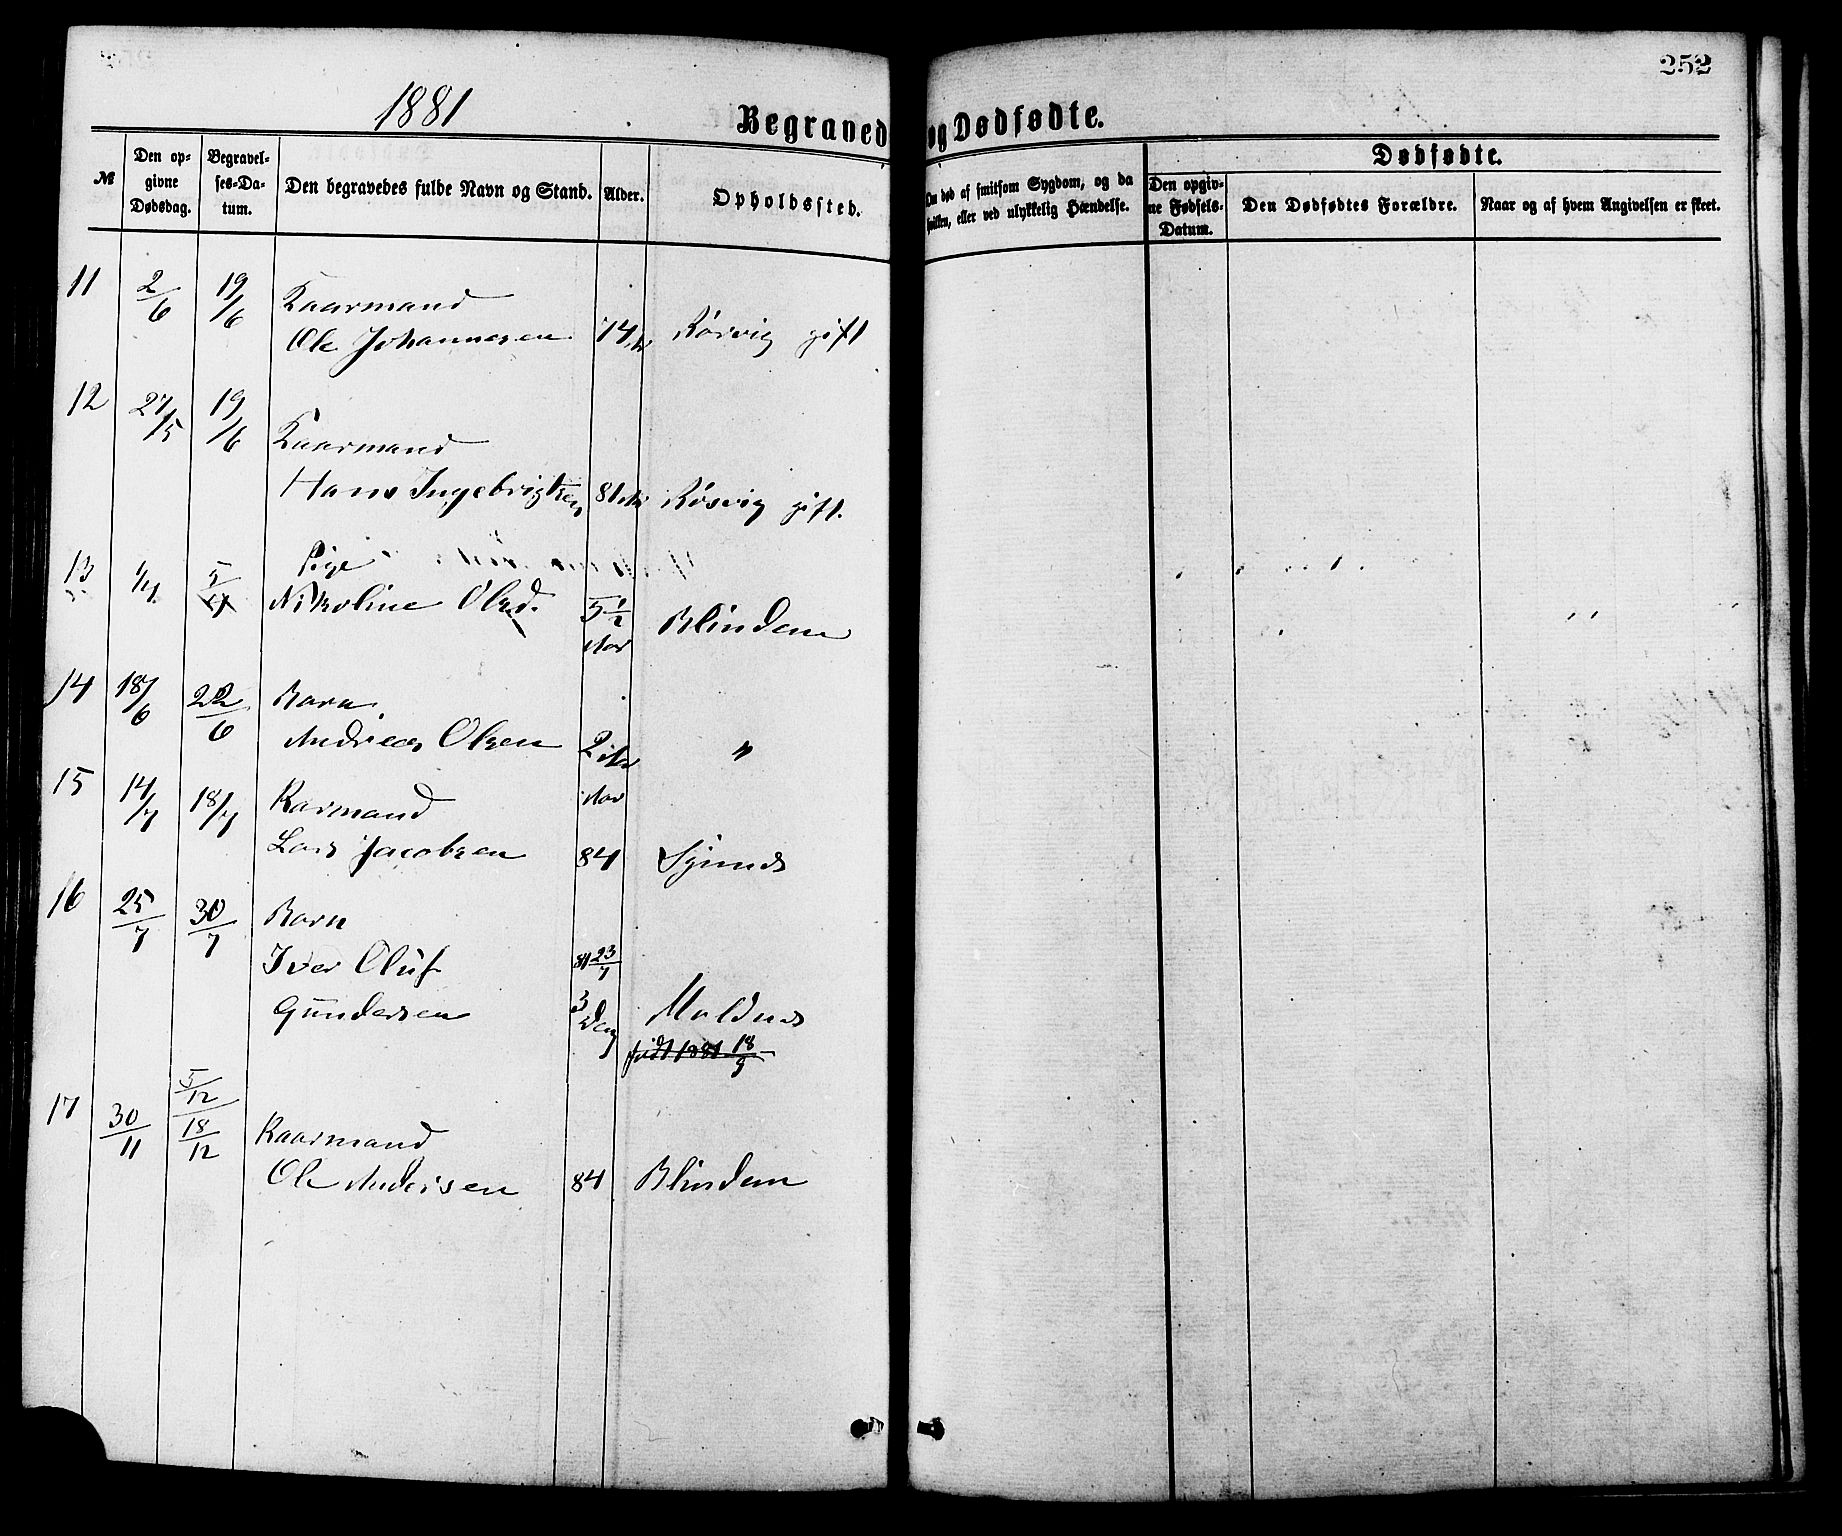 252
1881
Begravede og Dødfødte.
№
Den opgivne Dødsdag.
Begravelses-Datum.
Den begravedes fulde Navn og Stand.
Alder.
Opholdssted.
Om død af smitsom Sygdom, og da hvilken, eller ved ulykkelig Hændelse.
Dødfødte.
Den opgivne Fødsels-Datum.
Den Dødfødtes Forældre.
Naar og af hvem Angivelsen er skeet.
11 2/6 19/6 Kaarmand
Ole Johannesen 74 Rørvig gift
12 27/5 19/6 Kaarmand
Hans Ingebrigtsen 81 Aar Røsvig gift.
13 1/7 5/7 Pige
Nikoline Olsd. 5 1/2 Blindem
Aar
14 18/6 22/6 Barn
Andreas Olsen 2 Aar "
15 14/7 18/7 Karmand Aar
Lars Jacobsen 84
16 25/7 30/7 Barn
Iver Oluf 81 23/7
Gundersen 3 Dag Moldnes
født 1881 18/9
5/12
17 30/11 18/12 Kaarmand
Ole Andersen 84 Blindem